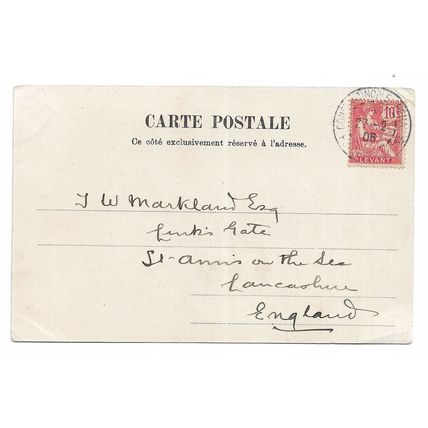 CARTE POSTALE
Ce côté exclusivement réservé à l'adresse.
10
LEVANT
06
J W Markland Esq
Link's Gate
St-Annis on the Sea
Lancashire
England